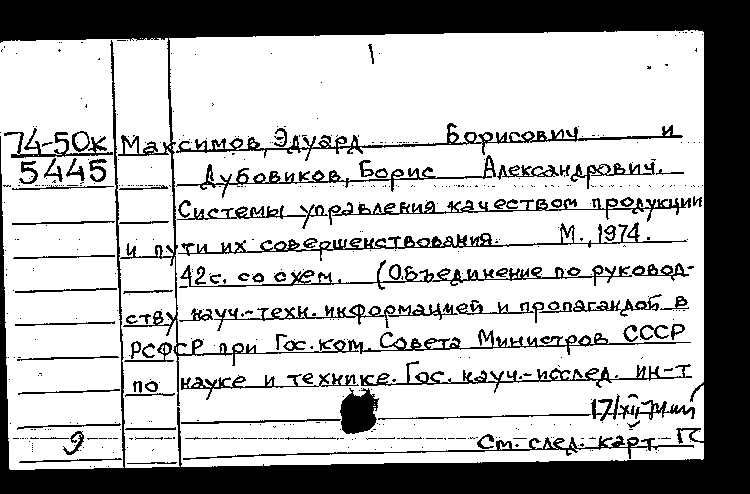 74-50к Максимов, Эдуард Борисович и
5445 Дубовиков, Борис Александрович.
Системы управления качеством продукции
и пути их совершенствования. М., 1974.
42с. со схем. (Объединение по руковод-
ству науч.-техн. информацией и пропагандой в
РСФСР при Гос. ком. Совета Министров СССР
по науке и технике. Гос. науч.-послед. ин-т
17/XII-74
9 См. след. карт.